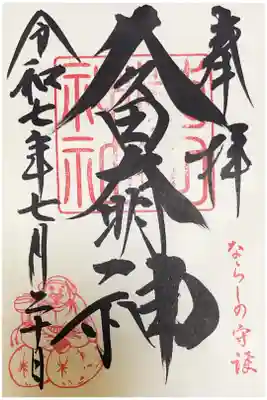 奉拝
久々田大明神
ならしの守護
令和七年七月二十日